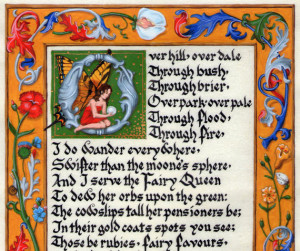 Over hill, over dale
Through bush,
Through brier,
Over park, over pale
Through flood,
Through fire,
I do wander everywhere,
Swifter than the moone's sphere,
And I serve the Fairy Queen
To dew her orbs upon the green:
The cowslips tall her pensioners be;
In their gold coats spots you see;
Those be rubies, fairy favours,